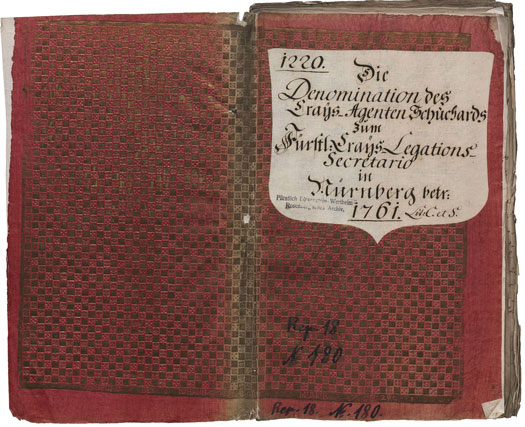 1220.
Die
Denomination des
Crays-Agenten Schuchards
zum
Fürstl. Crays Legations
Secretario
in
Nürnberg betr.
Fürstlich Löwenstein-Wertheim-
Rosenberg'sches Archiv.
1761. Lit. C. et S.
Rep. 18.
N. 180
Rep. 18. N. 180.